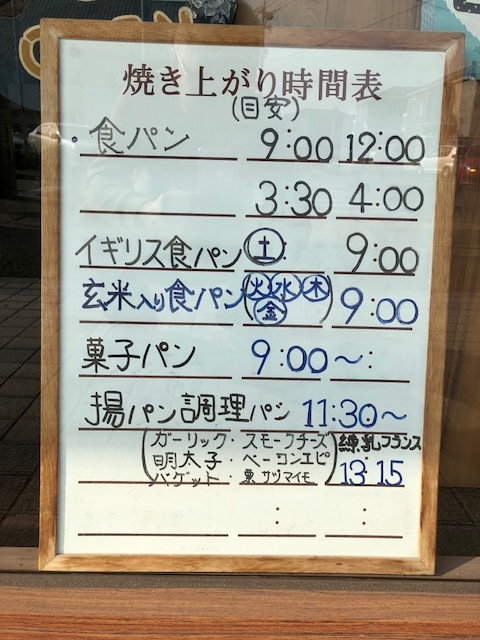 焼き上がり時間表
(目安)
・食パン 9:00 12:00
3:30 4:00
イギリス食パン (土) 9:00
玄米入り食パン (火水木金) 9:00
菓子パン 9:00〜 :
揚パン調理パン 11:30〜
(ガーリック・スモークチーズ 練乳フランス
明太子・ベーコンエピ :
バゲット・栗サツマイモ) 13:15
: :